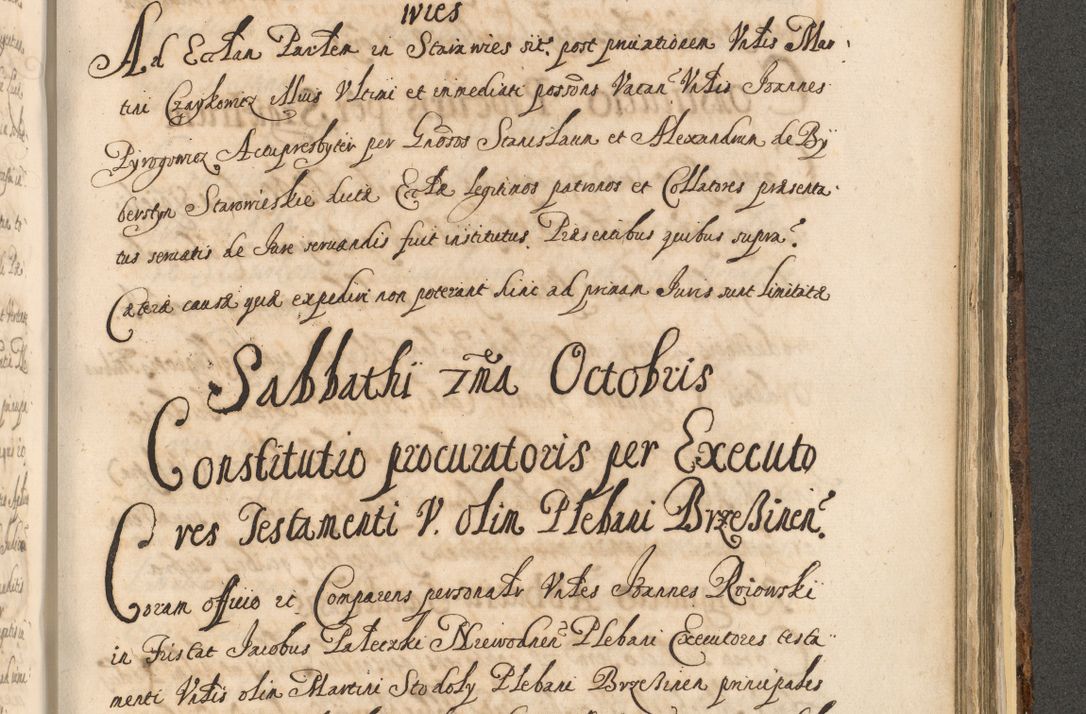 wies
Ad Eccłam Parłem in Starawies sit. post privationem Vnłis Mar
tini Czaykowicz illius Vltimi et immediati possōris Vacan. Vnłis Joannes
Pyrogowicz Actupresbyter per Gnōsos Stanislaum et Alexandrum de By
berstyn Starowieskie dictæ Ecłæ legitimos patronos et Collatores præsenta
tus servatis de Jure servandis fuit institutus. Præsentibus quibus supra.
Cætera causæ quæ expediri non poterant hinc ad primam Juris sunt limitatæ
Sabbathi 7ma Octobris
Constitutio procuratoris per Executo
res Testamenti V. olim Plebani Brzeßinen.
Coram officio et Comparens personałr Vnłes Joannes Roiowski
in Fristat Jacobus Pałeczki Plebani Executores testa
menti Vnłis olim Martini Stodoly Plebani Brzeßinen principales